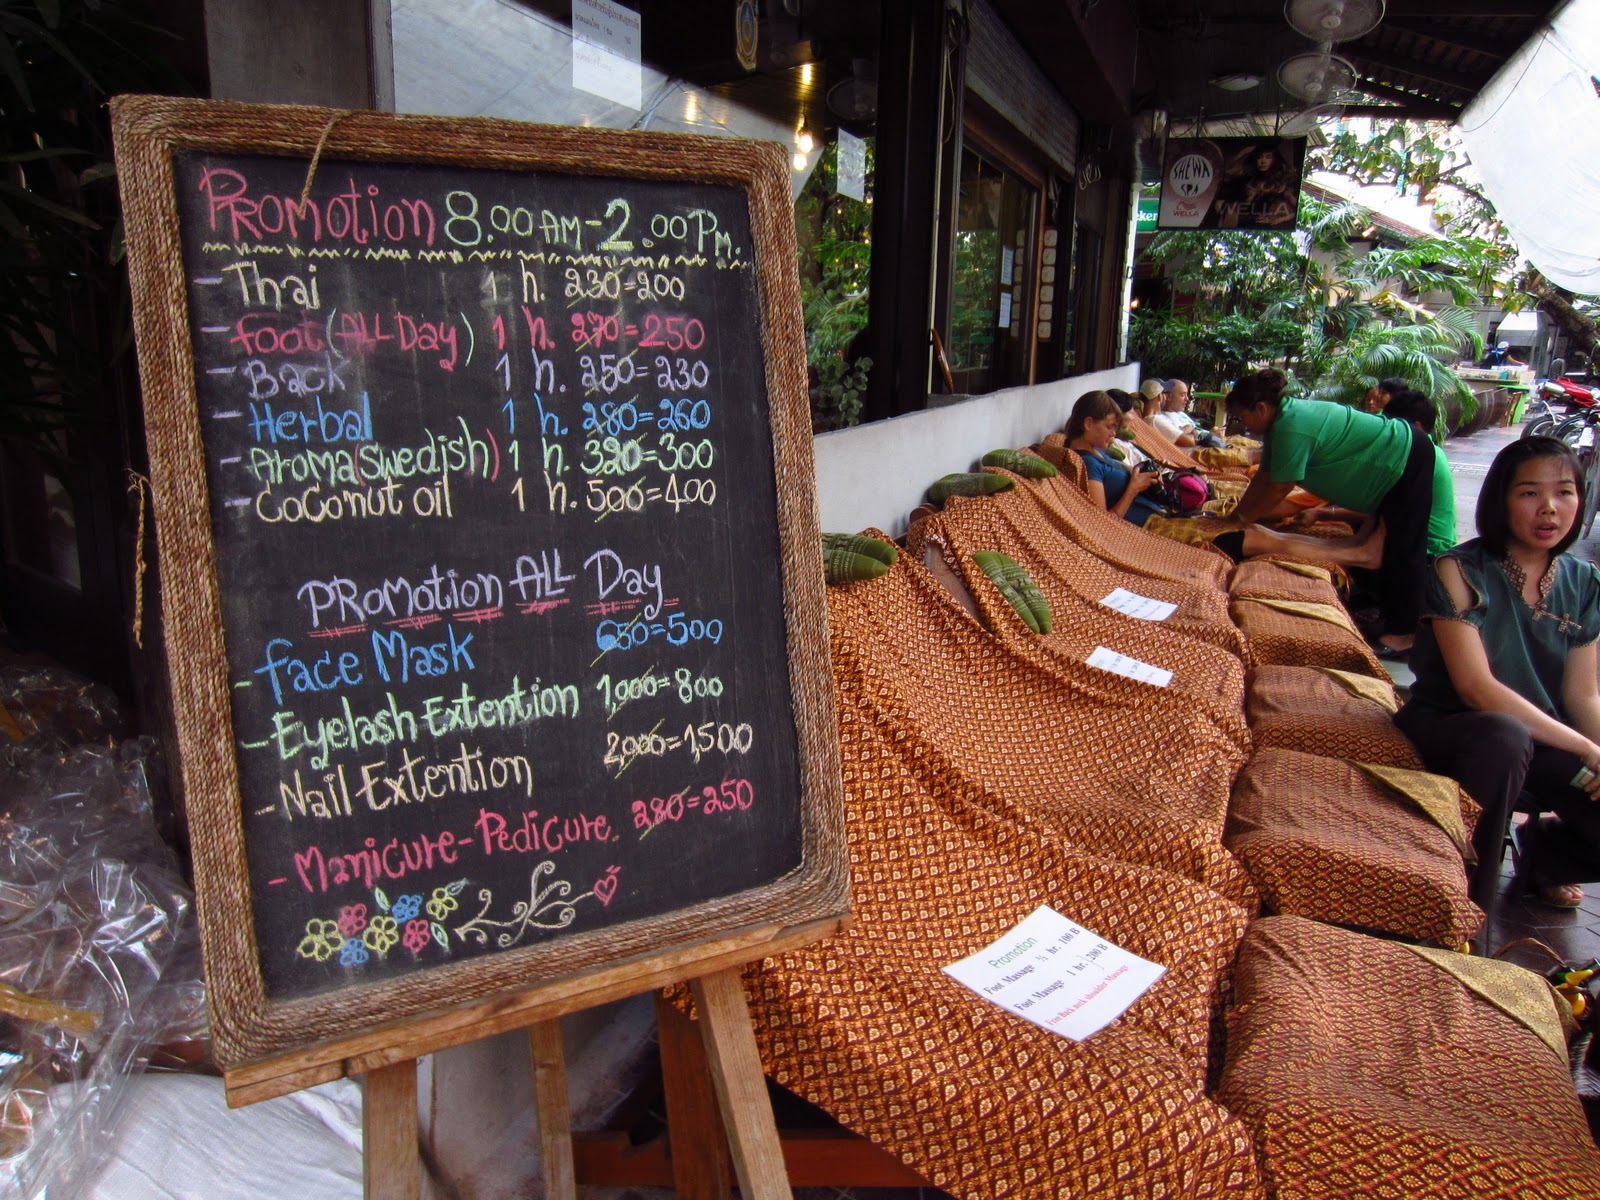 PRomotion 8.00 AM-2.00 Pm.
- Thai 1 h. 230=200
- foot (ALL Day) 1 h. 270=250
- Back 1 h. 250=230
- Herbal 1 h. 280=260
- Aroma (Swedish) 1 h. 320=300
- CoConut oil 1 h. 500=400
PRomotion ALL Day
- face Mask 650=500
- Eyelash Extention 1,000=800
- Nail Extention 2,000=1,500
- Manicure-Pedicure. 280=250
Promotion
Foot Massage ½ hr. 100 B
Foot Massage 1 hr. } 200 B
Free Back nek shoulder Massage
SHEWA
SPA
WELLA
WELLA
eken